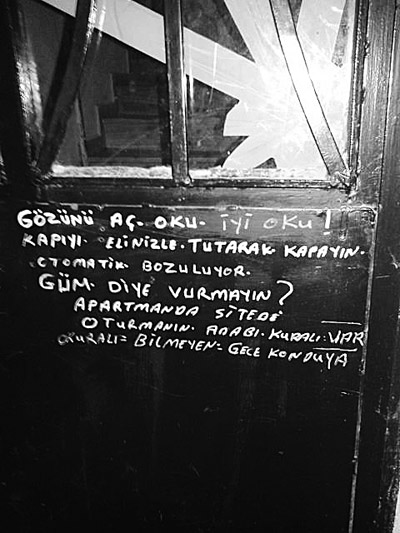 GÖZÜNÜ AÇ. OKU. İYİ OKU!
KAPIYI. ELİNİZLE. TUTARAK. KAPAYIN.
OTOMATİK. BOZULUYOR.
GÜM. DİYE VURMAYIN?
APARTMANDA SİTEDE
OTURMANIN. ADABI. KURALI: VAR
KURALI= BİLMEYEN= GECE KONDUYA